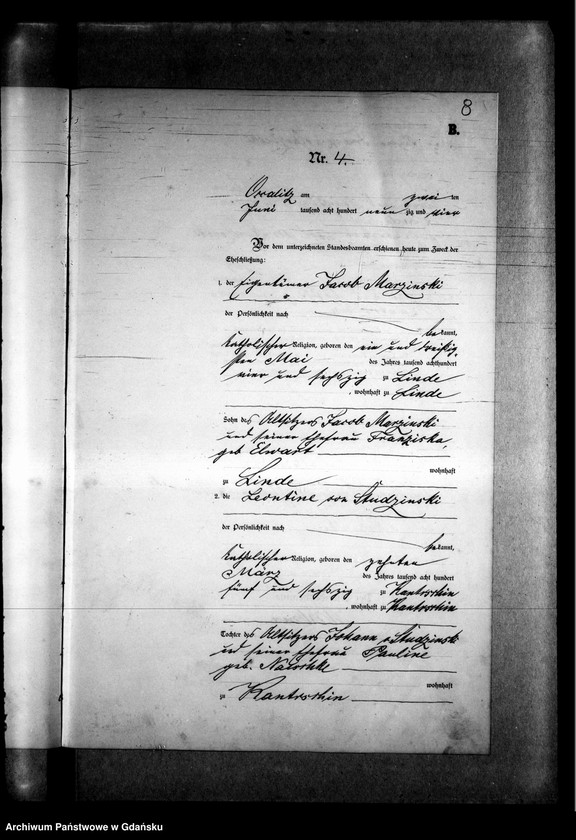 8
B.
Nr. 4.
am zwei ten
Juni tausend acht hundert neun zig und vier
Vor dem unterzeichneten Standesbeamten erschienen heute zum Zweck der
Eheschließung:
1. der Eigentümer Jacob Marzinski
der Persönlichkeit nach
be kannt,
katholischer Religion, geboren den ein und dreißig
sten Mai des Jahres tausend achthundert
vier und sechszig zu Linde
, wohnhaft zu Linde
Sohn des Altsitzers Jacob Marzinski
und seiner Ehefrau Franziska,
geb Elwart
wohnhaft
zu Linde
2. die Leontine von Studzinski
der Persönlichkeit nach
be kannt,
katholischer Religion, geboren den zehnten
März des Jahres tausend acht hundert
fünf und sechszig zu Kantrschin
, wohnhaft zu Kantrschin
Tochter des Altsitzers Johann v Studzinski
und seiner Ehefrau Pauline
geb.
wohnhaft
zu Kantrschin
Archiwum Państwowe w Gdańsku